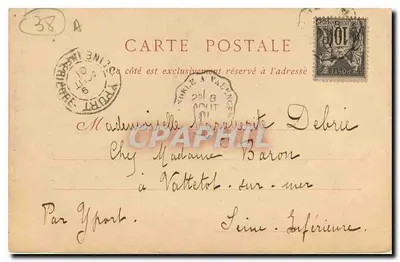 38 A
CARTE POSTALE
Ce côté est exclusivement réservé à l'adresse
10
YPORT
SEINE INFÉRIEURE
GRENOBLE A VALENCE
8
AOUT
Mademoiselle Marguerite Debrie
Chez Madame Baron
à Vattetot-sur-mer
Par Yport.
Seine-Inférieure.
CPARAMA.COM